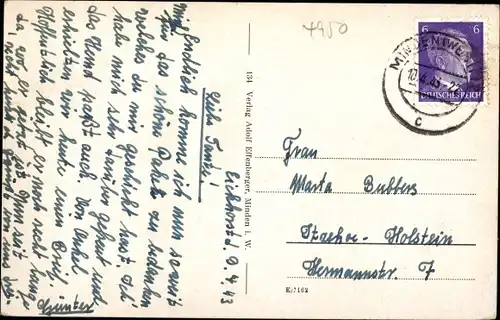 4950
6
6
MINDEN (WESTF)
10.4.43
DEUTSCHES REICH
c
Eickhorst d. 9.4.43
Liebe Tante!
Endlich komme ich nun so weit
für das schöne Paket zu bedanken
welches du mir geschickt hast. Ich
habe mich sehr darüber gefreut und
das Hemd paßt auch. Von Onkel
erhielten wir heute einen Brief
Hoffentlich bleibt er noch recht lange
da, wo er jetzt ist. Nun sei
von uns
Günter
mich
134 Verlag Adolf Effenberger, Minden i. W.
Frau
Marta Bubbers
Itzehoe - Holstein
Hermannstr. 7